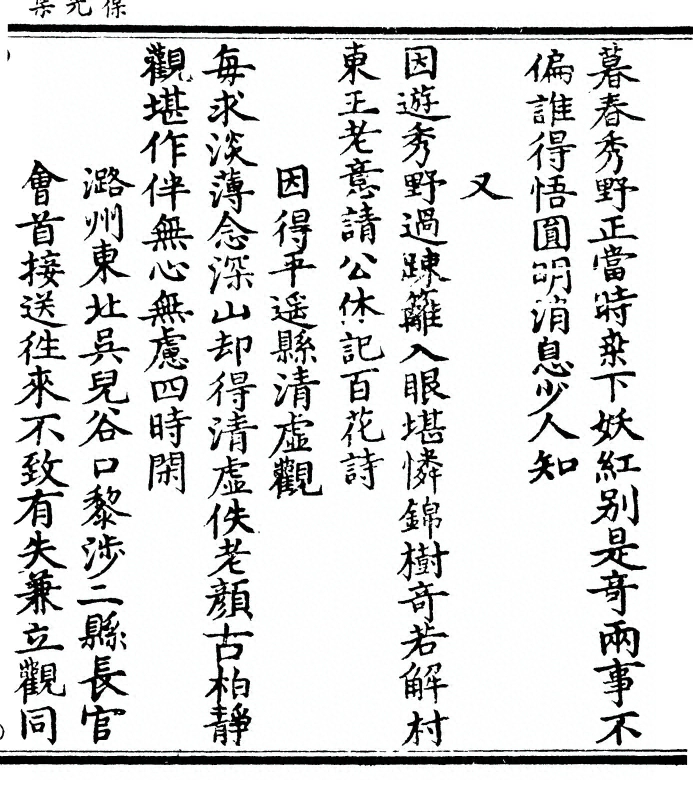 葆光集
暮春秀野正當時桒下妖紅别是竒兩事不
偏誰得悟圎明消息少人知
又
因遊秀野過踈籬入眼堪憐錦樹竒若解村
東王老意請公休記百花詩
因得平遥縣清虚觀
每求淡薄念深山却得清虚佚老顔古柏靜
觀堪作伴無心無慮四時閑
潞州東北吳兒谷口黎涉二縣長官
會首接送徃來不致有失兼立觀同